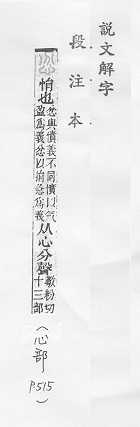 說文解字
段注本
忿悁也忿與憤義不同憤以气盈爲義忿以悁急爲義从心分聲敷粉切十三部(心部 P515)